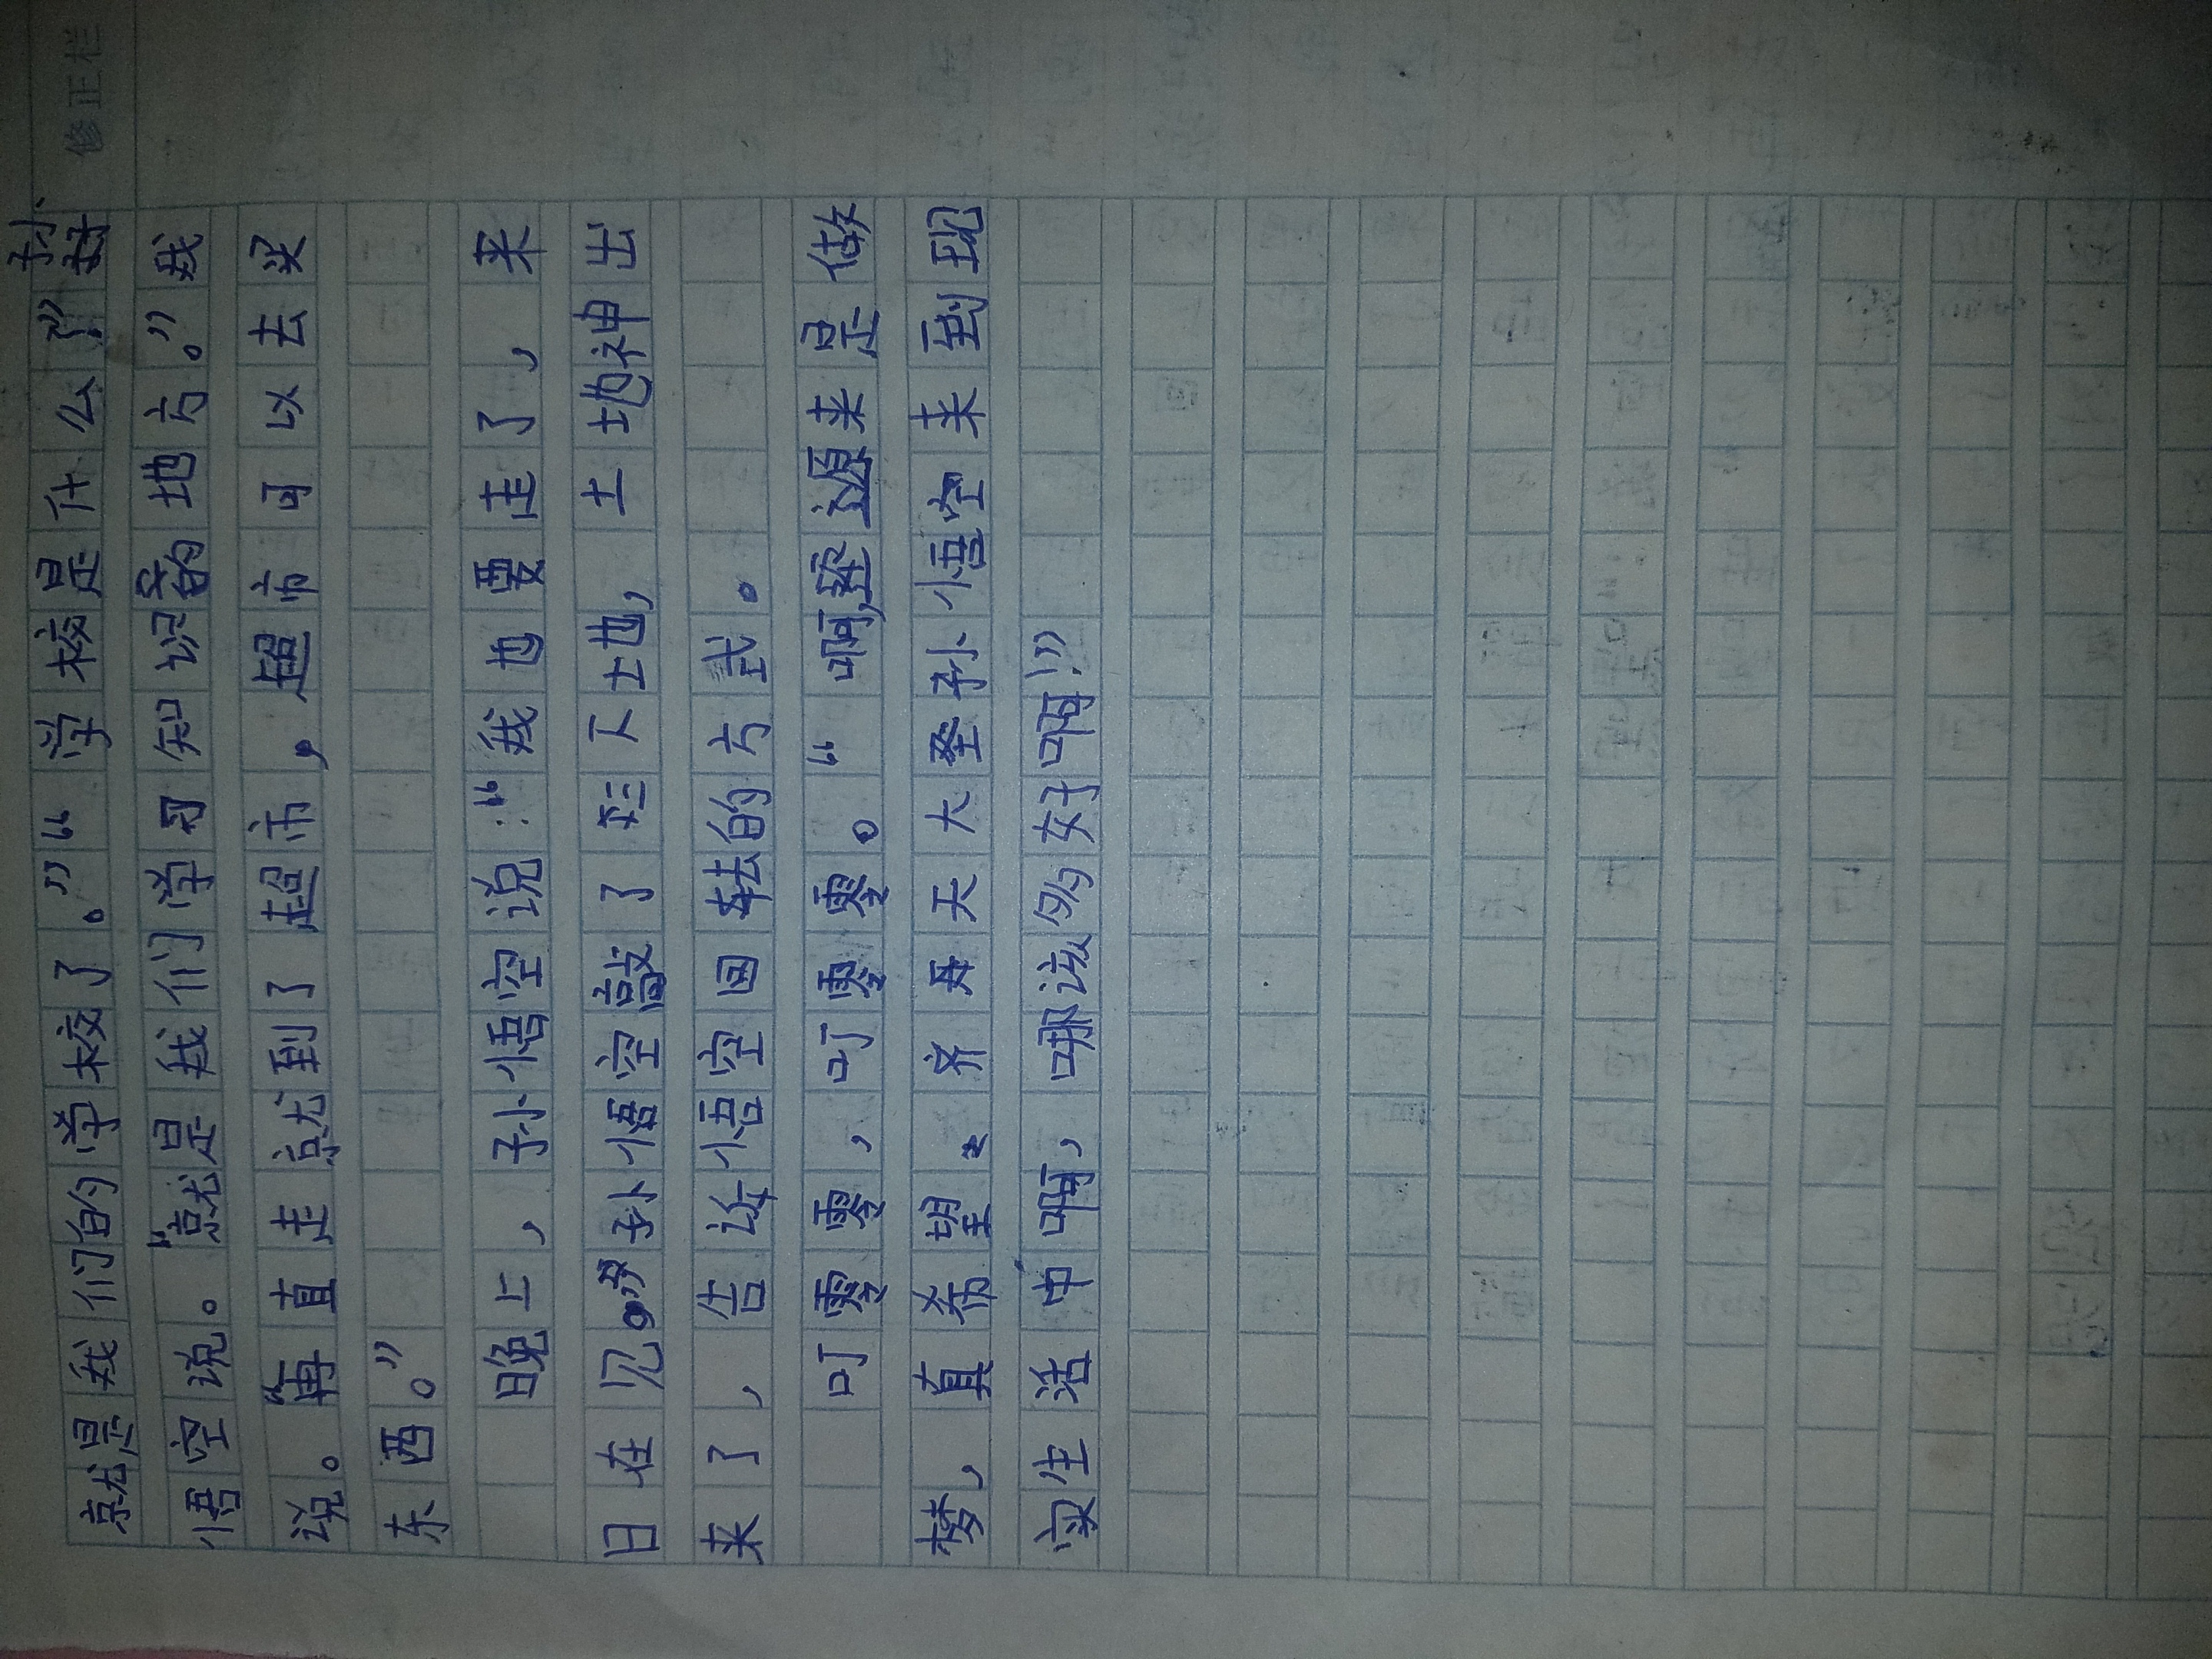 修正栏
就是我们的学校了。”“学校是什么?”孙
悟空说。“就是我们学习知识的地方。”我
说。“再直走就到了超市,超市可以去买
东西。”
晚上,孙悟空说:“我也要走了,来
日在见。”孙悟空敲了三下土地,土地神出
来了,告诉悟空回去的方式。
叮零零,叮零零。“啊,原来是做
梦,真希望。齐天大圣孙悟空来到现
实生活中啊,哪该多好啊!”